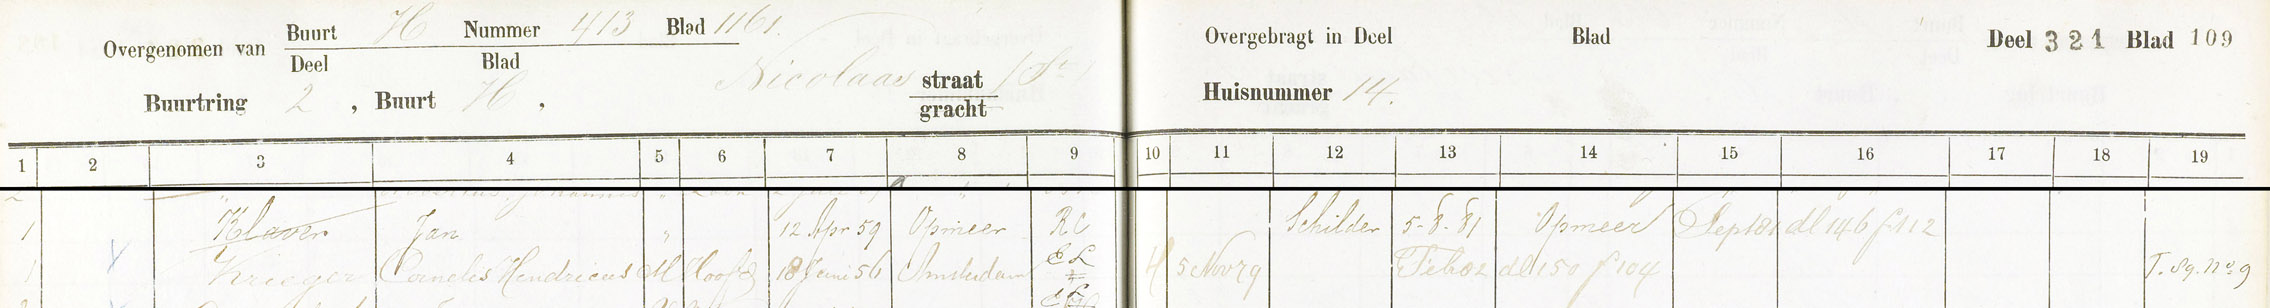 Overgenomen van Buurt H Nummer 413 Blad 1161.
Deel Blad
Nicolaas straat (St)
gracht
Buurtring 2, Buurt H,
Overgebragt in Deel Blad Deel 321 Blad 109
Huisnummer 14.
1 2 3 4 5 6 7 8 9 10 11 12 13 14 15 16 17 18 19
1 Klaver Jan " 12 Apr 59 Opmeer RC Schilder 5-8-81 Opmeer Sept 81 dl 146 f 112
1 Krieger Cornelis Hendricus M Hoofd 18 Juni 56 Amsterdam EL H 5 Nov 79 Feb 82 dl 150 f 104 T. sg. no 9